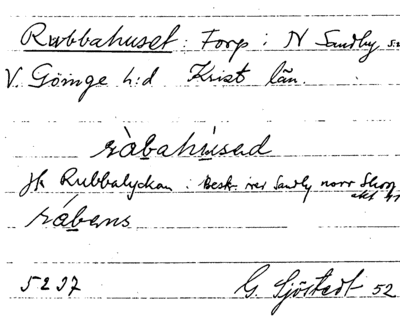 Rubbahuset: Torp i N Sandby sn
V. Göinge h:d Krist län.
ràbahùsad
jfr Rubbalyckan: Beskr. över Sandby norr Skog
akt
rábens
5297 G. Sjöstedt 52